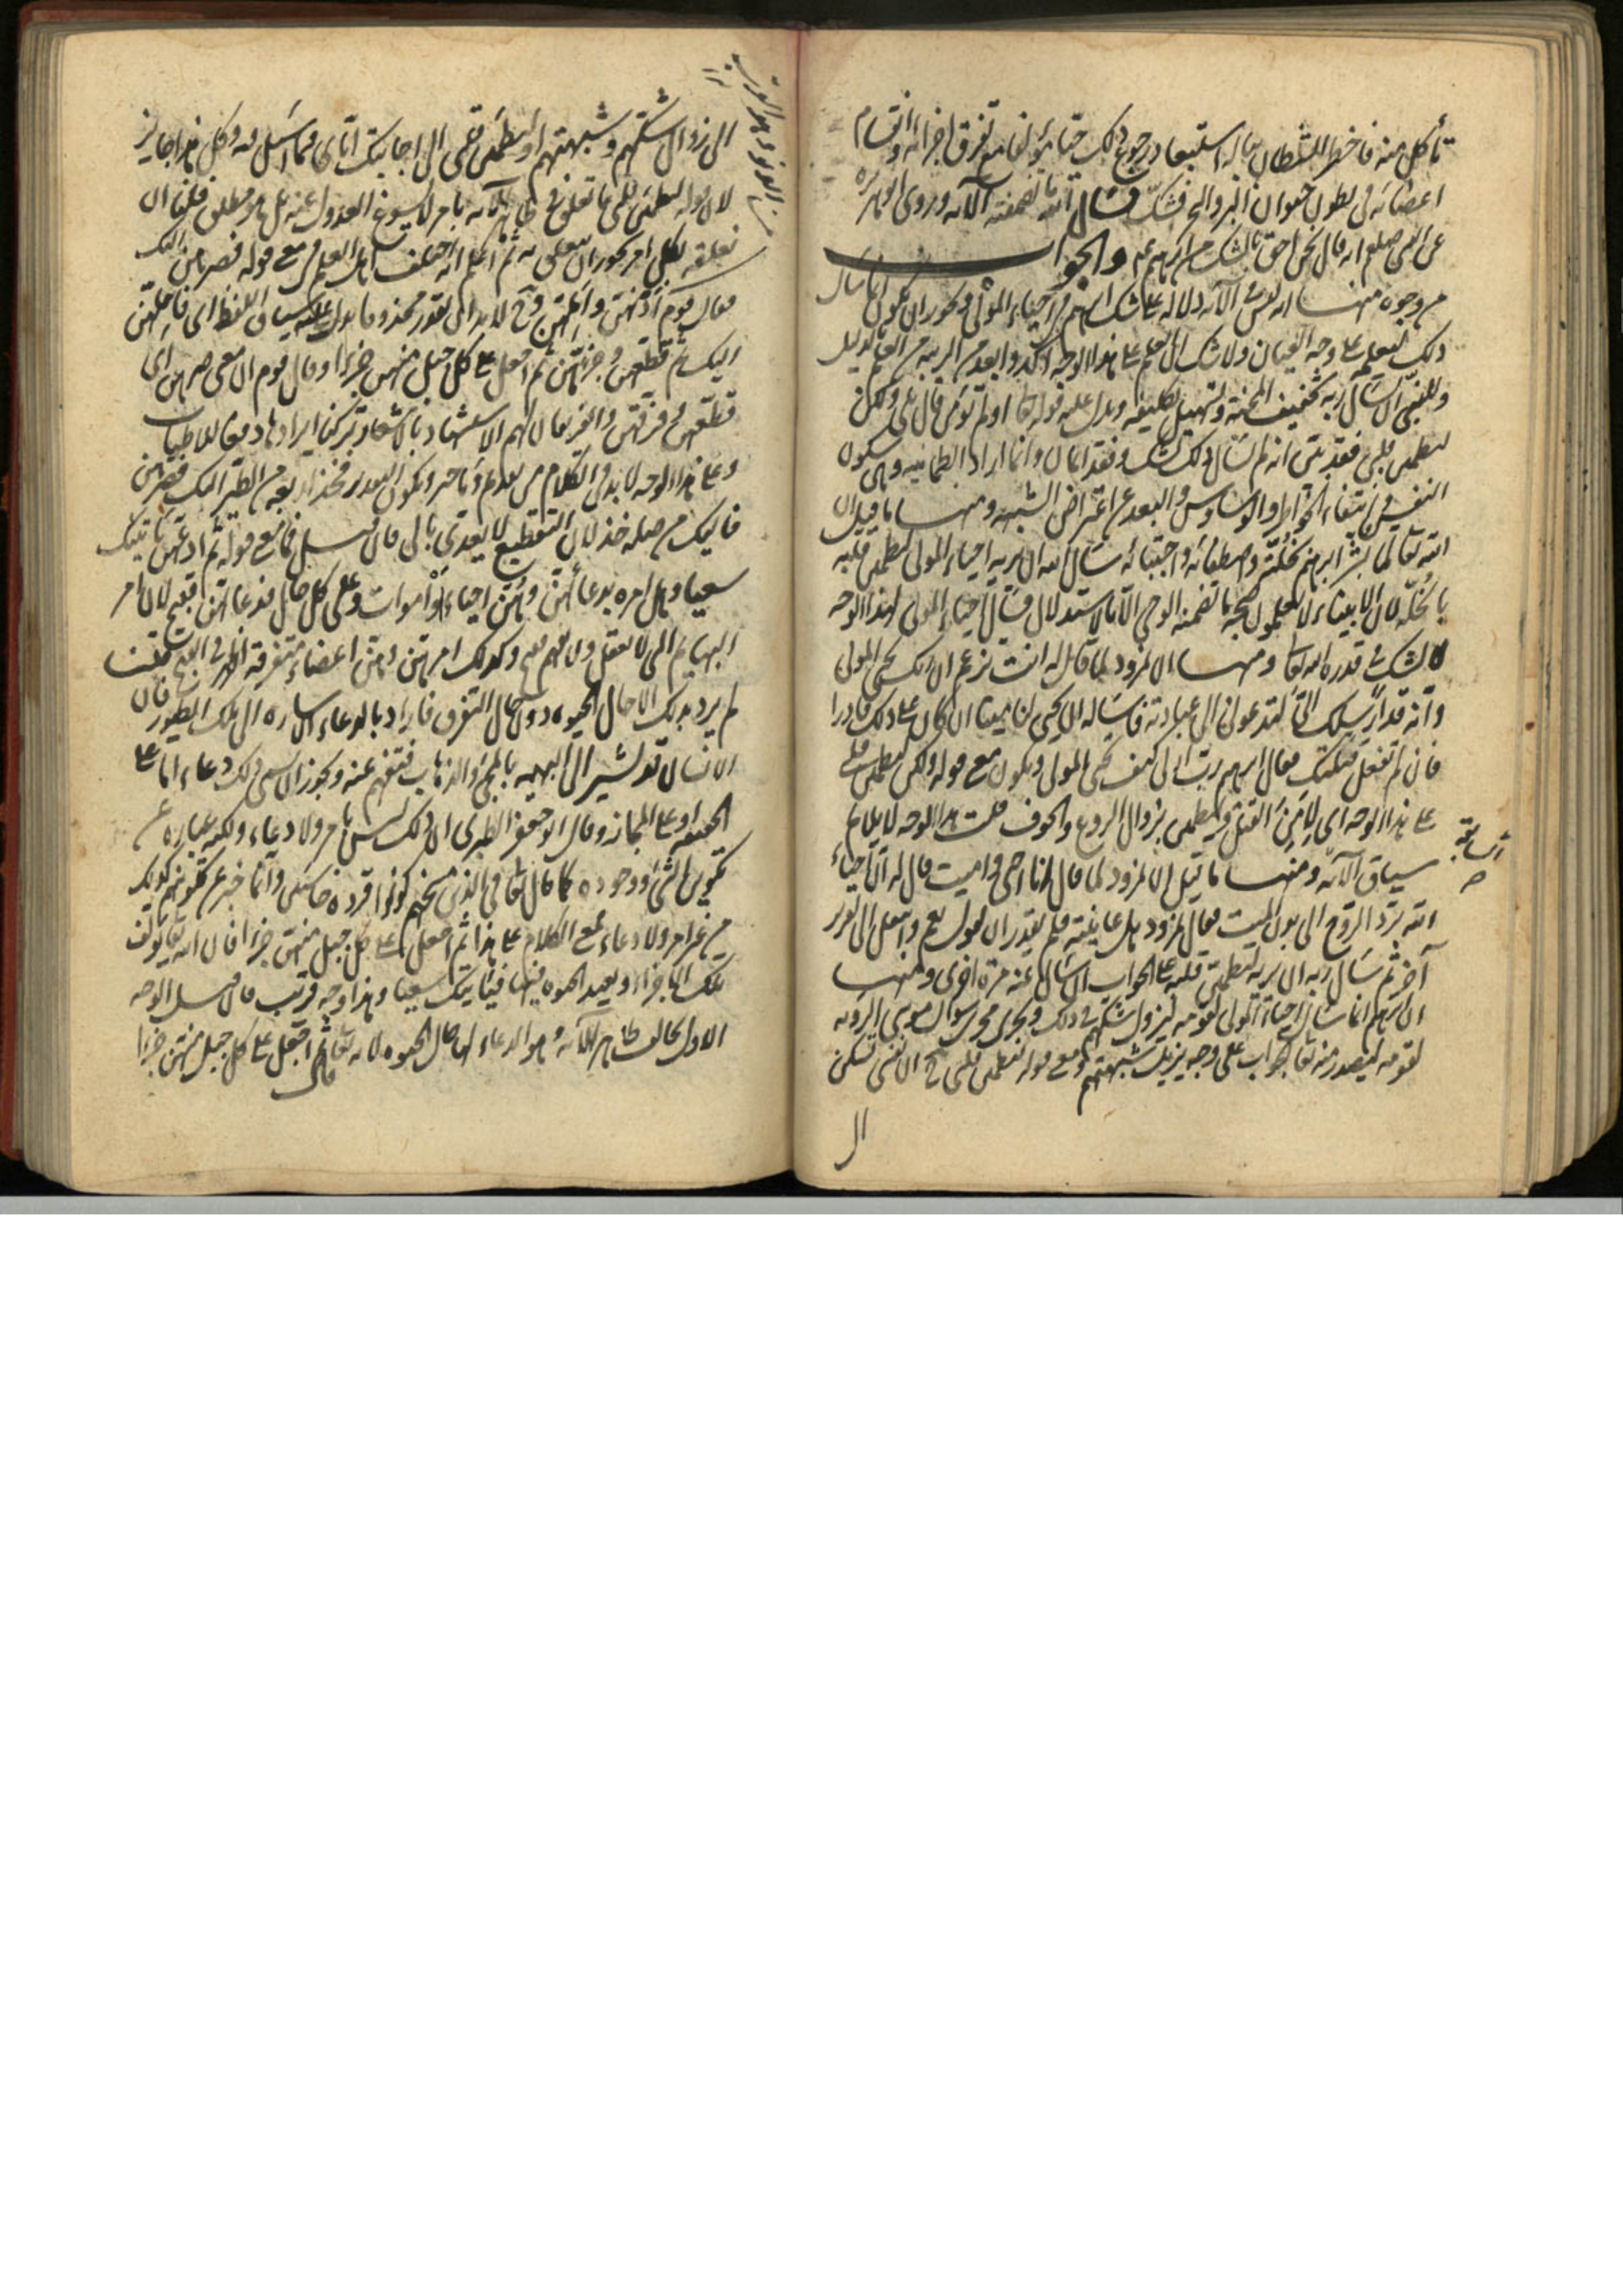 تأكل منه فاخطر الشيطان بباله استبعاد رجوع ذلك حيا مؤلفا مع تفرق اجزائه وانقسام
اعضائه في بطون حيوان البر والبحر فشك فسأل الله ما تضمنته الآية وروى ابو هريرة
عن النبي صلعم انه قال نحن احق بالشك من ابرهيم عم والجواب
من وجوه منها انه ليس في الآية دلالة على شك ابرهيم في احياء الموتى ويجوز ان يكون انما سأل
ذلك ليعلمه على وجه العيان ولا شك ان العلم على هذا الوجه اوكد وابعد من الريبة من العلم بالدليل
وللنبي ان يسأل ربه تخفيف المحنة وتسهيل تكليفه ويدل عليه قوله تعا اولم تؤمن قال بلى ولكن
ليطمئن قلبي فقد بين انه لم يسأل ذلك لشك وفقد ايمان وانما اراد الطمانينة وهي سكون
النفس وانتفاء الخواطر والوساوس والبعد عن اعتراض الشبهة ومنها ما قيل ان
الله تعا لما بشر ابرهيم بخلته واصطفائه واجتبائه سأل الله ان يريه احياء الموتى ليطمئن قلبه
بالخلة لان الانبياء لا يعلمون صحة ما تضمنه الوحي الا بالاستدلال فسأل احياء الموتى لهذا الوجه
لا لشك في قدرة الله تعا ومنها ان نمرود لما قال له انت تزعم ان ربك يحيى الموتى
وانه قد ارسلك الي لتدعوني الى عبادته فاسأله ان يحيى لنا ميتا ان كان على ذلك قادرا
فان لم تفعل قتلتك فقال ابرهيم رب ارني كيف تحيى الموتى ويكون مع قوله ولكن ليطمئن قلبي
على هذا الوجه اي لآمن القتل ويطمئن بزوال الروع والخوف قلت هذا الوجه لا يلائم
سياق الآية ومنها ما قيل ان نمرود لما قال انا احيي واميت قال له ان احياء
الله برد الروح الى بدن الميت فقال نمرود هل عاينته فلم يقدر ان يقول نعم وانتقل الى تقرير
آخر ثم سأل ربه ان يريه ليطمئن قلبه على الجواب ان سأل عنه مرة اخرى ومنها
ان ابرهيم انما سأل احياء الموتى لقومه ليزول شكهم في ذلك ويجري مجرى سؤال موسى الرؤية
لقومه ليصدر منه تعا الجواب على وجه يزيل شبهتهم ومع قوله ليطمئن قلبي ح ان نفسي تسكن
الى
الى زوال شكهم وشبهتهم او ليطمئن قلبي الى اجابتك اياي فيما اسئلك فيه وكل هذا جايز
لان قوله ليطمئن قلبي ما تعلق في ظاهر الآية بامر لا يسوغ العدول عنه بل هو مطلق فلنا ان
نعلقه بكل امر يجوز ان يتعلق به ثم اعلم انه اختلف اهل العلم في مع قوله فصرهن اليك
فقال قوم ادنهن واملهن وح لا بد الى تقدير محذوف يدل عليه سياق اللفظ اي فاملهن
اليك ثم قطعهن وجزئهن ثم اجعل على كل جبل منهن جزءا وقال قوم ان معنى صرهن اي
قطعهن وفرقهن وللفريقان لهم الاستشهاد بالاشعار تركنا ايرادها دفعا للاطناب
وعلى هذا الوجه لا بد في الكلام من تقديم وتاخير ويكون التقدير فخذ اربعة من الطير اليك فصرهن
فاليك من صلة خذ لان التقطيع لا يعدى بالى فان قيل فما مع قوله ثم ادعهن ياتينك
سعيا وهل امره بدعائهن وهن احياء او اموات وعلى كل حال فدعائهن قبيح لان امر
البهايم التي لا تعقل ولا تفهم قبيح وكذلك امرهن وهن اعضاء متفرقة اظهر في القبح قلنا
لم يرد بذلك الا حال الحيوة دون حال التفرق فاراد بالدعاء الاشارة الى تلك الطيور فان
الانسان قد يشير الى البهيمة بالمجيء والذهاب فتفهم عنه ويجوز ان يسمى ذلك دعاء اما على
الحقيقة او على المجاز وقال ابو جعفر الطبري ان ذلك ليس بامر ولا دعاء ولكنه عبارة عن
تكوين الشيء ووجوده كما قال تعا في الذين مسخهم كونوا قردة خاسئين وانما خبر عن تكوينهم كذلك
من غير امر ولا دعاء فمع الكلام على هذا ثم اجعل على كل جبل منهن جزءا فان الله تعا يؤلف
تلك الاجزاء ويعيد الحيوة فيها فياتينك سعيا وهذا وجه قريب فان قيل الوجه
الاول يخالف ظاهر الآية وهو الدعاء لها حال الحيوة لانه تعا قال ثم اجعل على كل جبل منهن جزءا